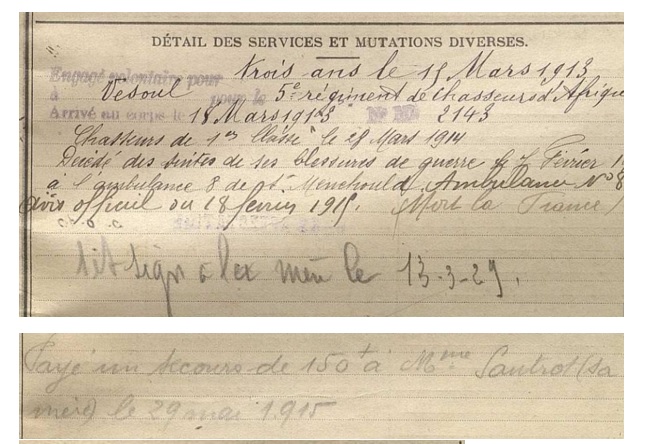 DÉTAIL DES SERVICES ET MUTATIONS DIVERSES.
Engagé volontaire pour trois ans le 15 Mars 1913
à Vesoul pour le 5e régiment de Chasseurs d'Afrique
Arrivé au corps le 18 Mars 1913 N° 2143
Chasseurs de 1re Classe le 28 Mars 1914
Décédé des suites de ses blessures de guerre le Février
à l'ambulance 8 de Ste Menehould Ambulance N° 8
avis officiel du 18 février 1915. (Mort pour la France)
le 13-3-29.
Payé un secours de 150f à Mme Santrot (sa
mère) le 29 mai 1915